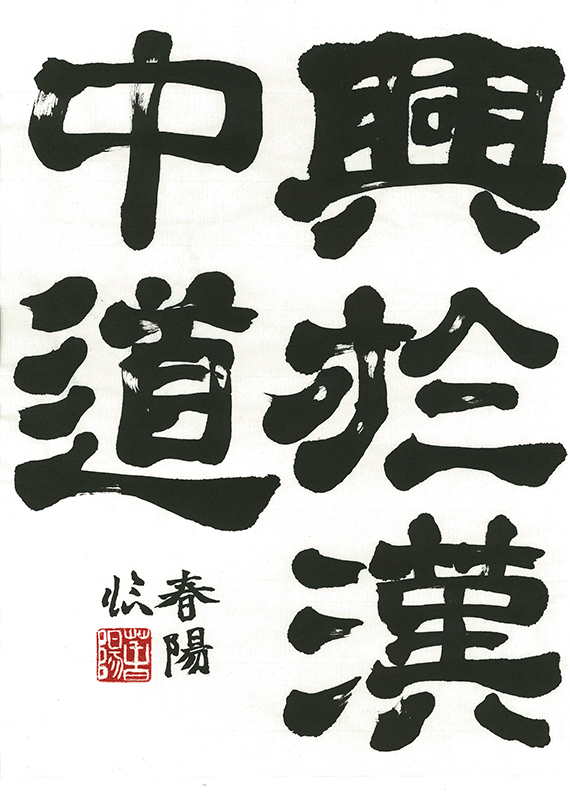 興於漢
中道
春陽
臨
春陽